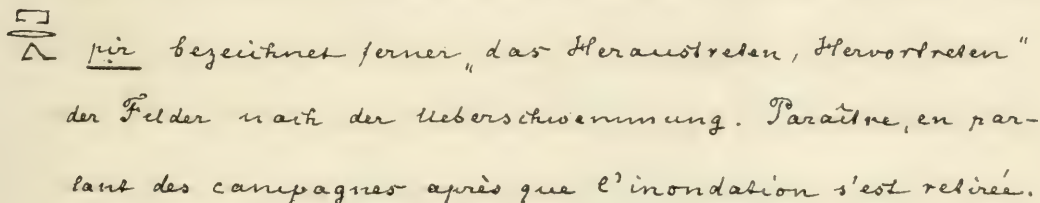 𓉐𓂋𓂻 pir bezeichnet ferner „das Heraustreten, Hervortreten“
der Felder nach der Ueberschwemmung. Paraître, en par-
lant des campagnes après que l'inondation s'est retirée.